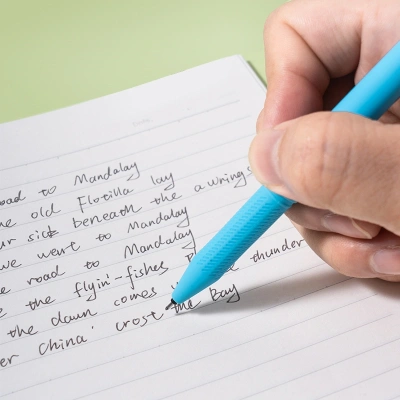 oad to Mandalay
e old Flotilla lay
ur sick beneath the awnings
we went to Mandalay
e road to Mandalay
e the flyin'-fishes
the dawn comes thunder
er China' crost the Bay